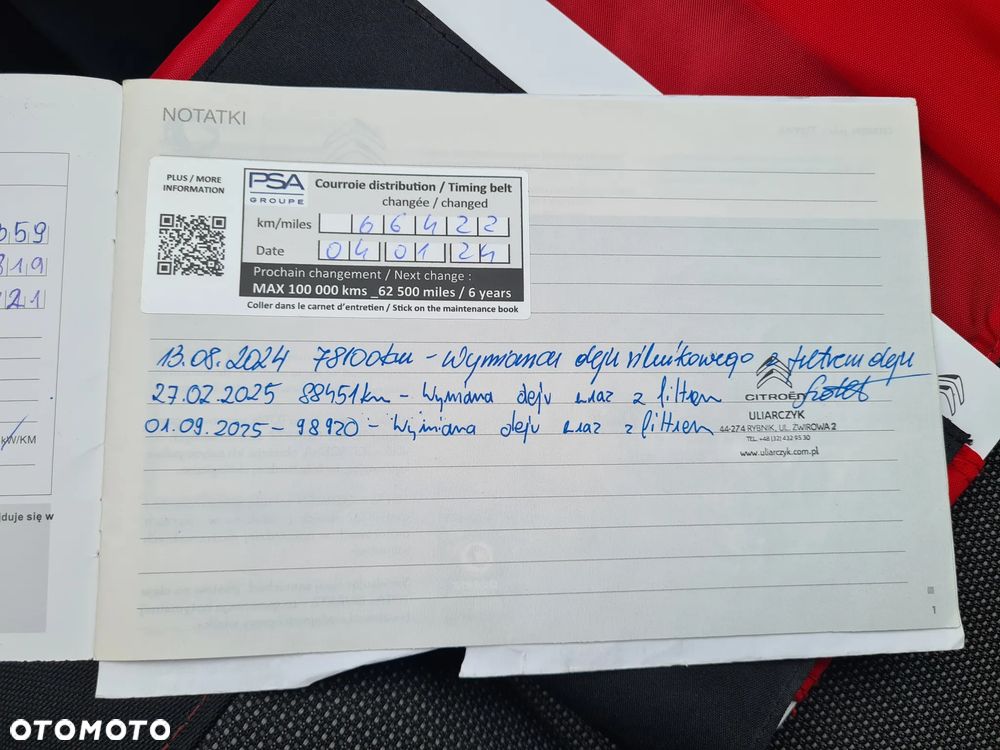 NOTATKI
PLUS / MORE
INFORMATION
PSA
GROUPE
Courroie distribution / Timing belt
changée / changed
km/miles 66422
Date 04 01 24
Prochain changement / Next change :
MAX 100 000 kms _62 500 miles / 6 years
Coller dans le carnet d'entretien / Stick on the maintenance book
359
819
21
13.08.2024 78100km - Wymiana oleju silnikowego z filtrem oleju
27.02.2025 88451km - Wymiana oleju wraz z filtrem
01.09.2025 - 98920 - Wymiana oleju wraz z filtrem
CITROËN
ULIARCZYK
44-274 RYBNIK, UL. ŻWIROWA 2
TEL. +48 (32) 432 95 30
www.uliarczyk.com.pl
kW/KM
duje się w
1
OTOMOTO